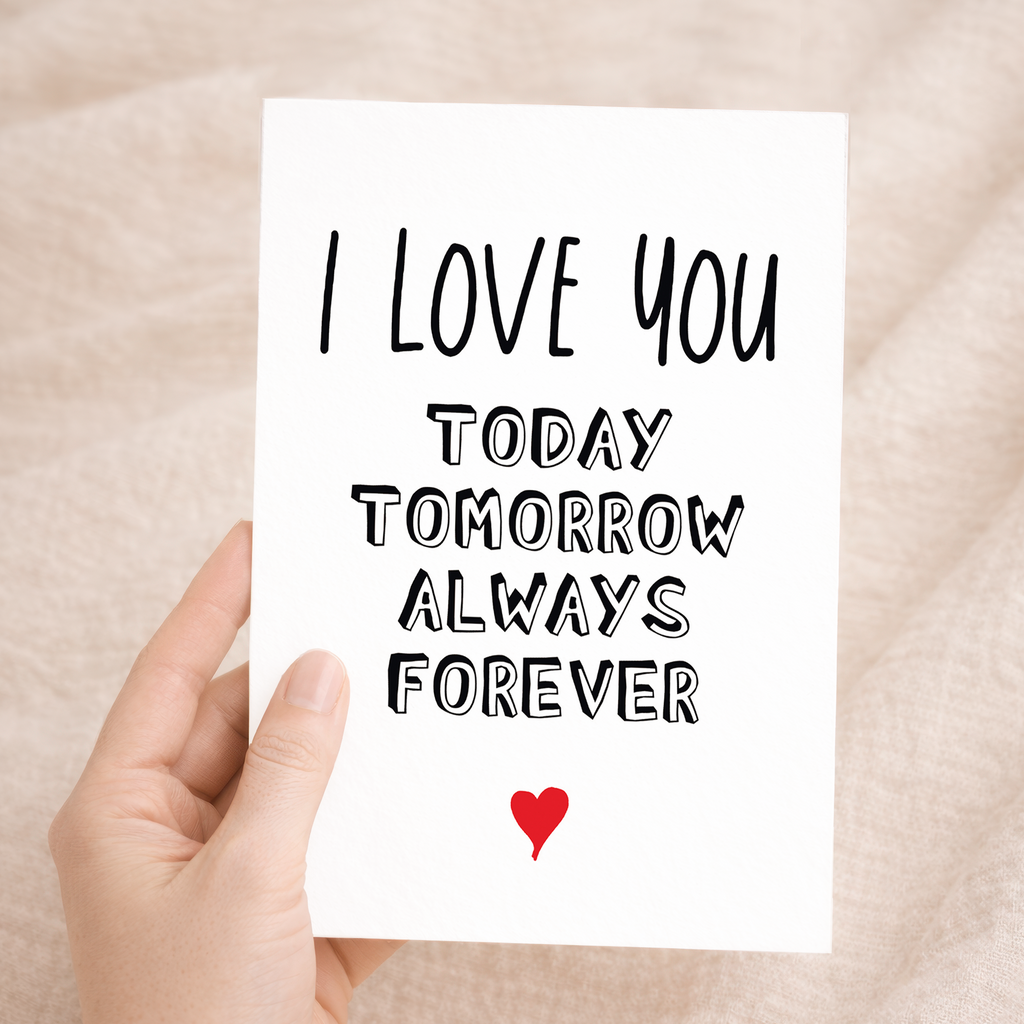 I LOVE YOU
TODAY
TOMORROW
ALWAYS
FOREVER